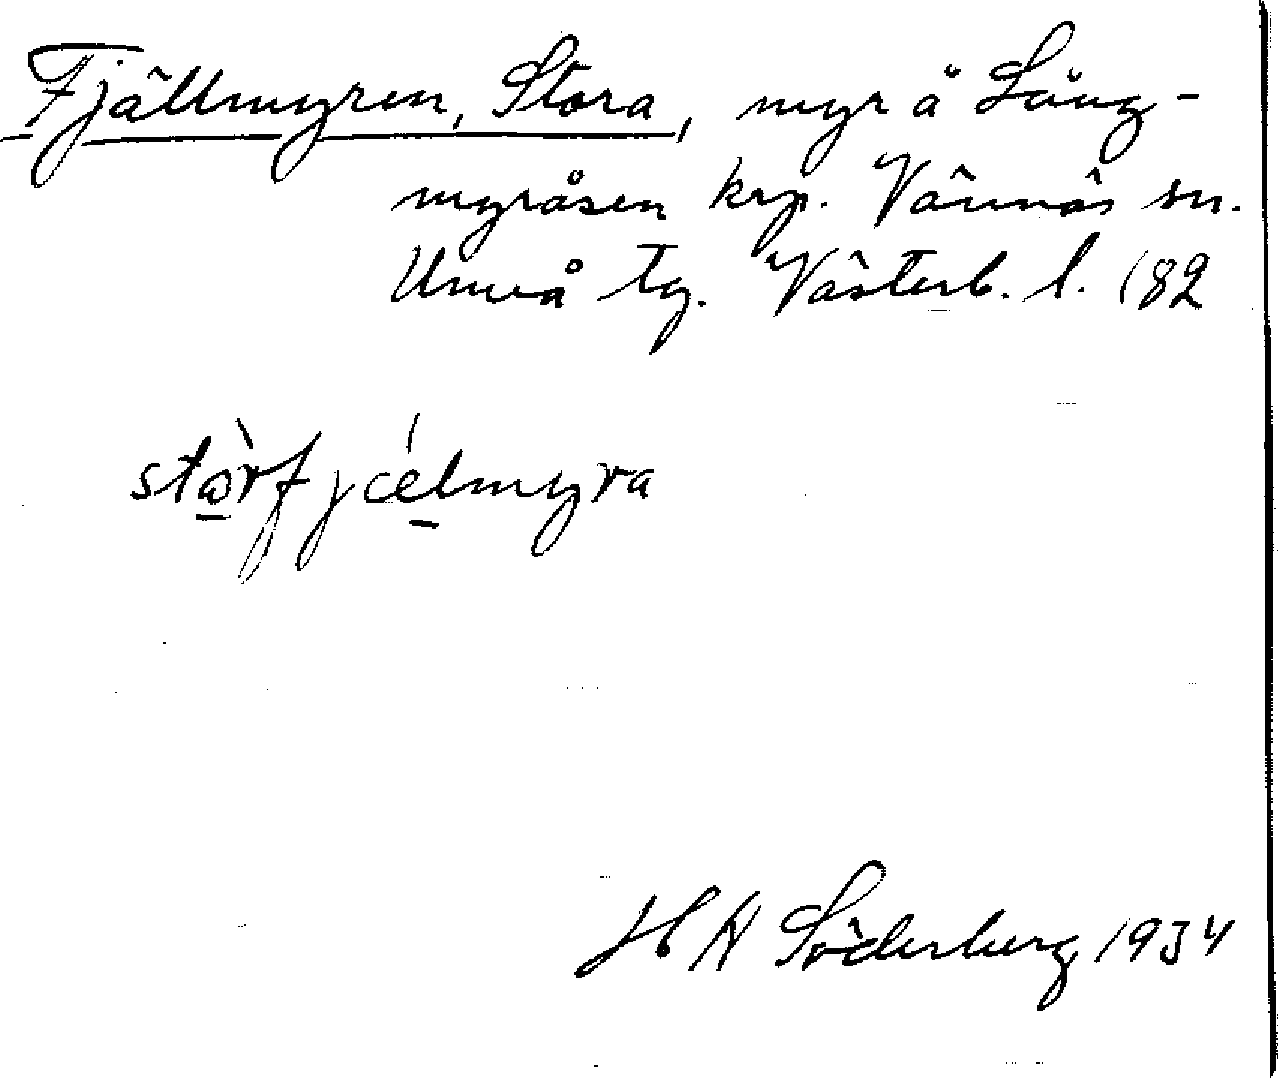 Fjällmyren, Stora, myr å Lång-
myråsen krp. Vännäs sn.
Umeå tg. Västerb. l. 182
stòrfjælmyra
H A Söderberg 1934